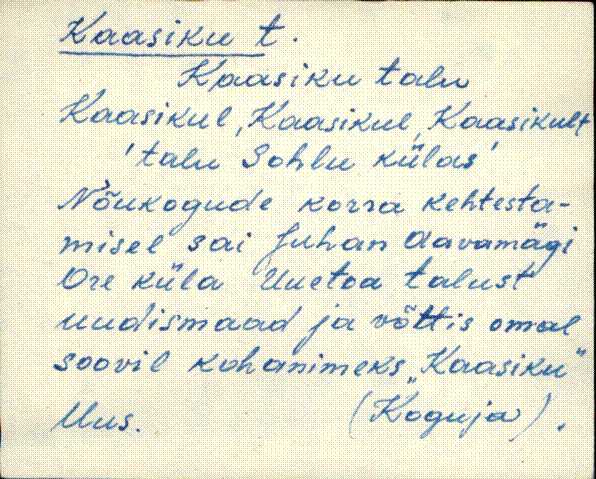 Kaasiku t.
Kaasiku talu
Kaasikul, Kaasikul, Kaasikult
'talu Sohlu külas'
Nõukogude korra kehtesta-
misel sai Juhan Aavamägi
Ore küla Uuetoa talust
uudismaad ja võttis omal
soovil kohanimeks „Kaasiku"
Uus. (Koguja).